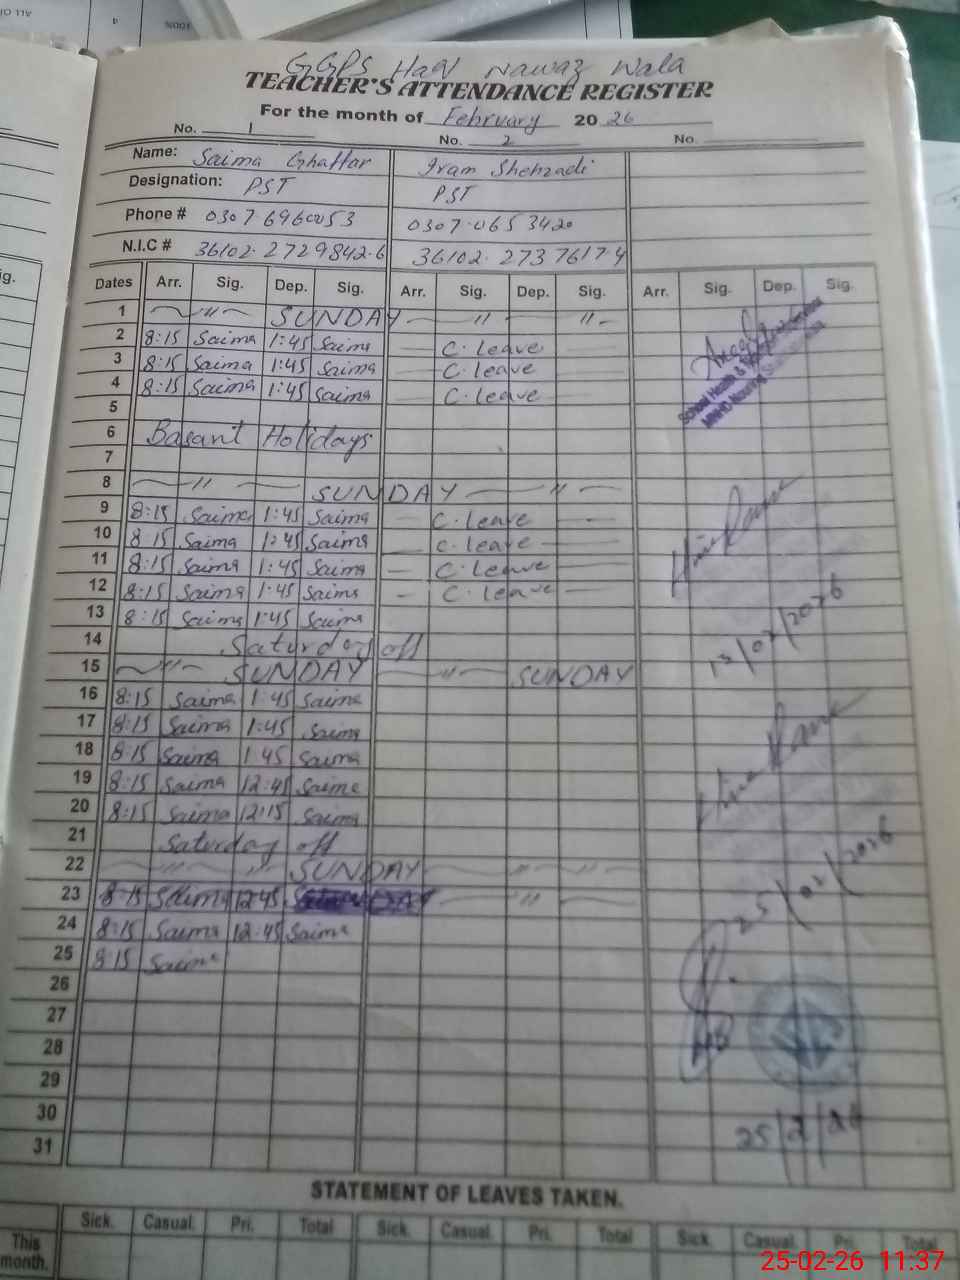 GGPS Haq Nawaz Wala
TEACHER'S ATTENDANCE REGISTER
For the month of February 2026
No. 1 No. 2 No.
Name: Saima Ghaffar Iram Shehzadi
Designation: PST PST
Phone # 0307-6960053 0307-0653420
N.I.C # 36102-2729842-6 36102-2737617-4
Dates Arr. Sig. Dep. Sig. Arr. Sig. Dep. Sig. Arr. Sig. Dep. Sig.
1 〃 SUNDAY 〃 〃
2 8:15 Saima 1:45 Saima C. leave
3 8:15 Saima 1:45 Saima C. leave
4 8:15 Saima 1:45 Saima C. leave
5
6 Basant Holidays
7
8 〃 SUNDAY 〃
9 8:15 Saima 1:45 Saima C. leave
10 8:15 Saima 1:45 Saima C. leave
11 8:15 Saima 1:45 Saima C. leave
12 8:15 Saima 1:45 Saima C. leave
13 8:15 Saima 1:45 Saima
14 Saturday off
15 〃 SUNDAY 〃 SUNDAY
16 8:15 Saima 1:45 Saima
17 8:15 Saima 1:45 Saima
18 8:15 Saima 1:45 Saima
19 8:15 Saima 12:45 Saima
20 8:15 Saima 12:15 Saima
21 Saturday off
22 〃 〃 SUNDAY 〃 〃
23 8:15 Saima 12:45 〃
24 8:15 Saima 12:45 Saima
25 8:15 Saima
26
27
28
29
30
31
School Health &
13/02/2026
25/02/2026
25/2/26
STATEMENT OF LEAVES TAKEN.
Sick. Casual. Pri. Total Sick. Casual. Pri. Total Sick. Casual. Pri. Total
This month.
25-02-26 11:37